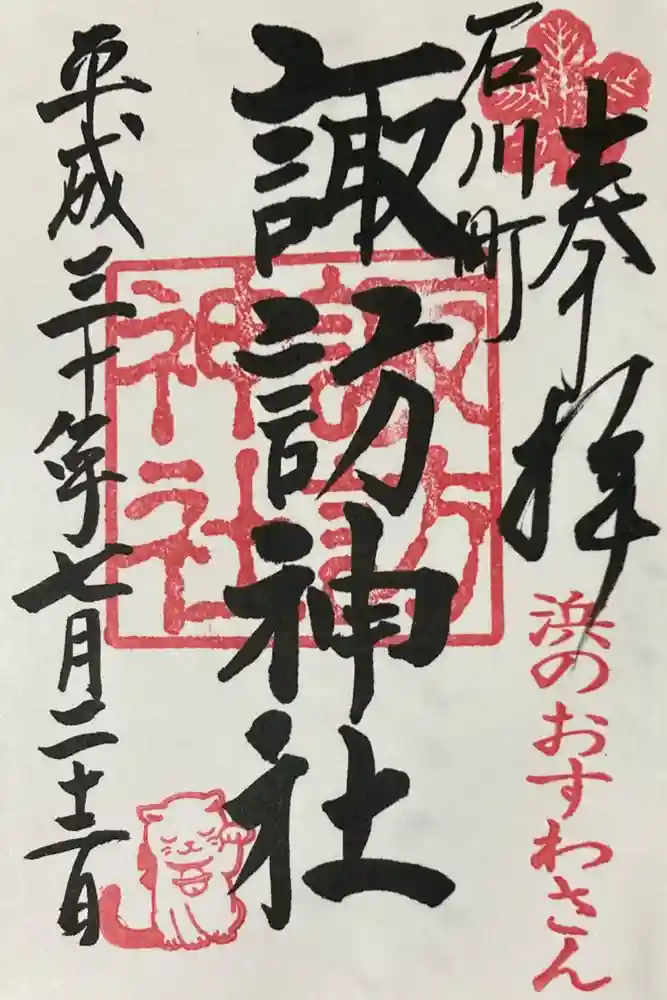 奉拝
浜のおすわさん
石川町
諏訪神社
諏訪
神社
平成三十年七月二十二日